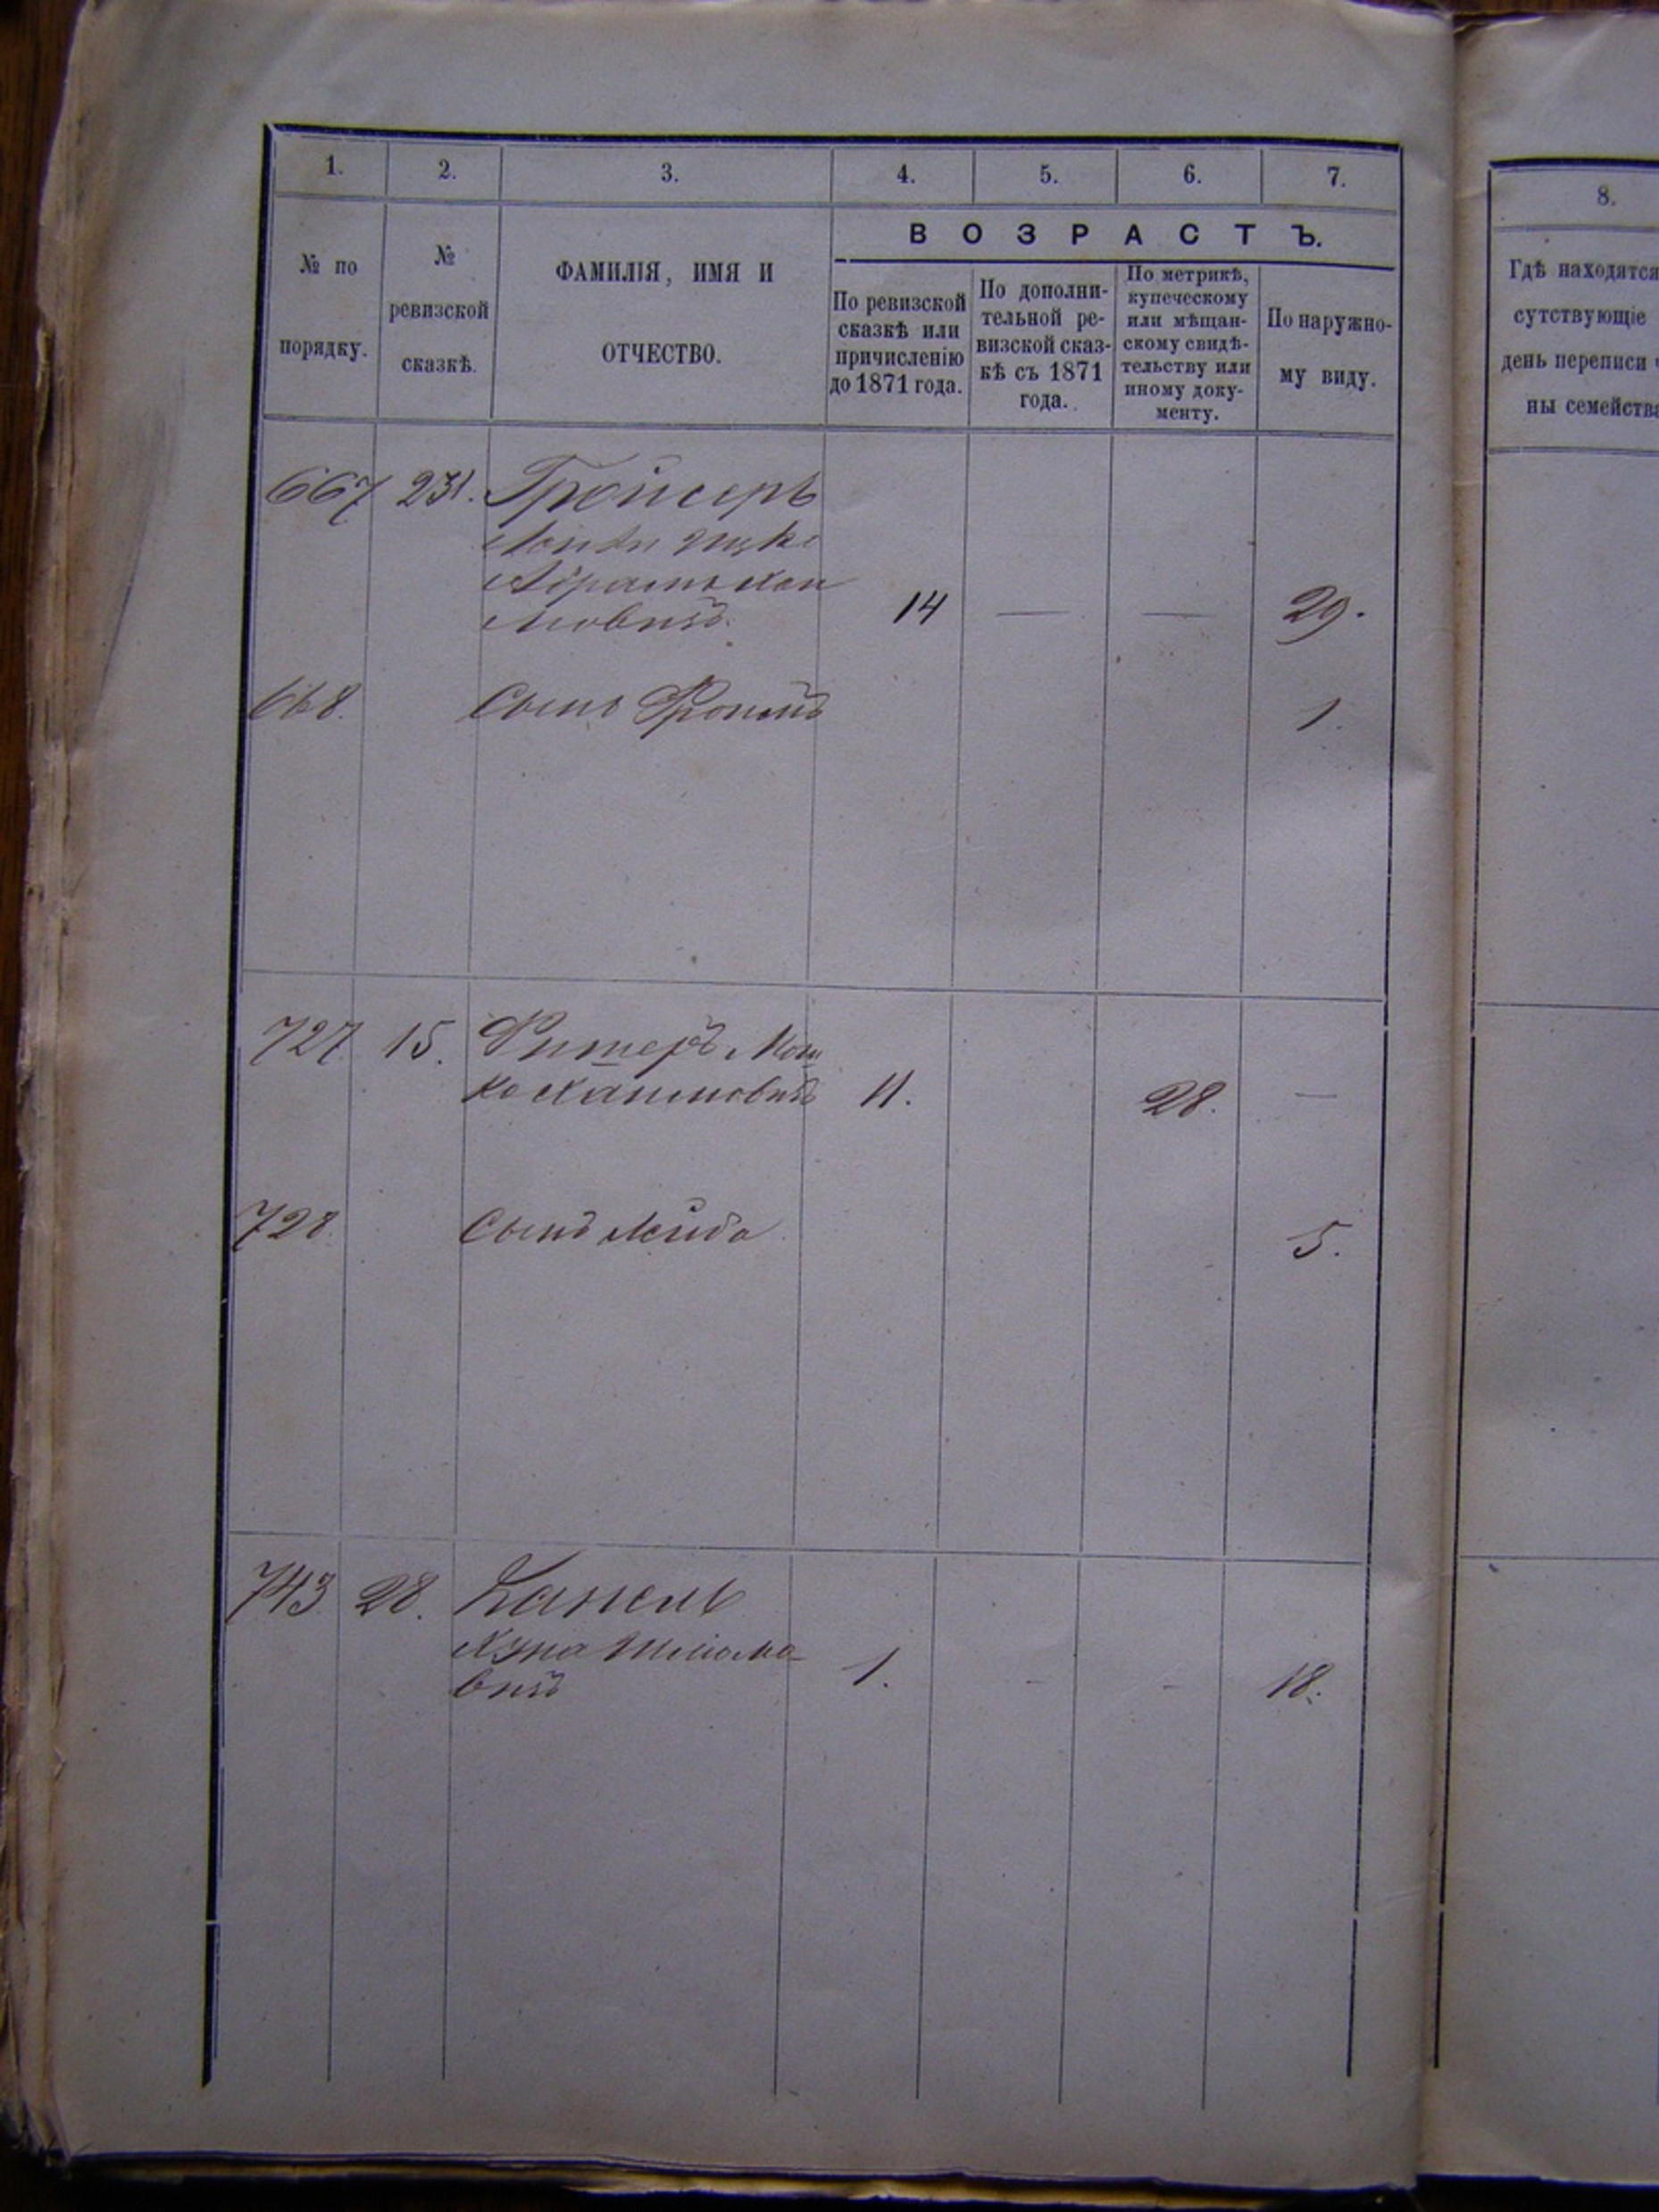 1. 2. 3. 4. 5. 6. 7.
№ по порядку.
№ ревизской сказкѣ.
ФАМИЛІЯ, ИМЯ И
ОТЧЕСТВО.
ВОЗРАСТЪ.
По ревизской
сказкѣ или
причисленію
до 1871 года.
По дополни-
тельной ре-
визской сказ-
кѣ съ 1871
года.
По метрикѣ,
купеческому
или мѣщан-
скому свидѣ-
тельству или
иному доку-
менту.
По наружно-
му виду.
667 231. Гройсеръ
Ицко
Абрамъ Хаи
мовичъ. 14 — — 29.
668. Сынъ 1.
727 15. Ритеръ Мош
ко Хаимовичъ 11. 28. —
728. Сынъ Лейба 5.
743 28. Капель
Шліомо-
вичъ 1. - - 18.
8.
Гдѣ находятся
сутствующіе
день переписи
ны семейства